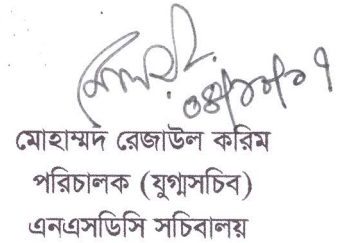 ০৪/১০/১৭
মোহাম্মদ রেজাউল করিম
পরিচালক (যুগ্মসচিব)
এনএসডিসি সচিবালয়